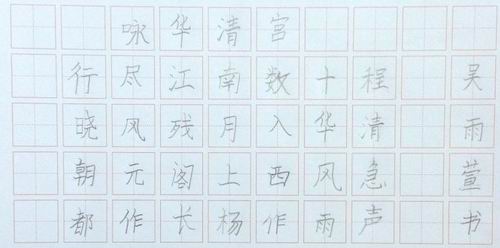 咏华清宫
行尽江南数十程
晓风残月入华清
朝元阁上西风急
都作长杨作雨声
吴雨萱书